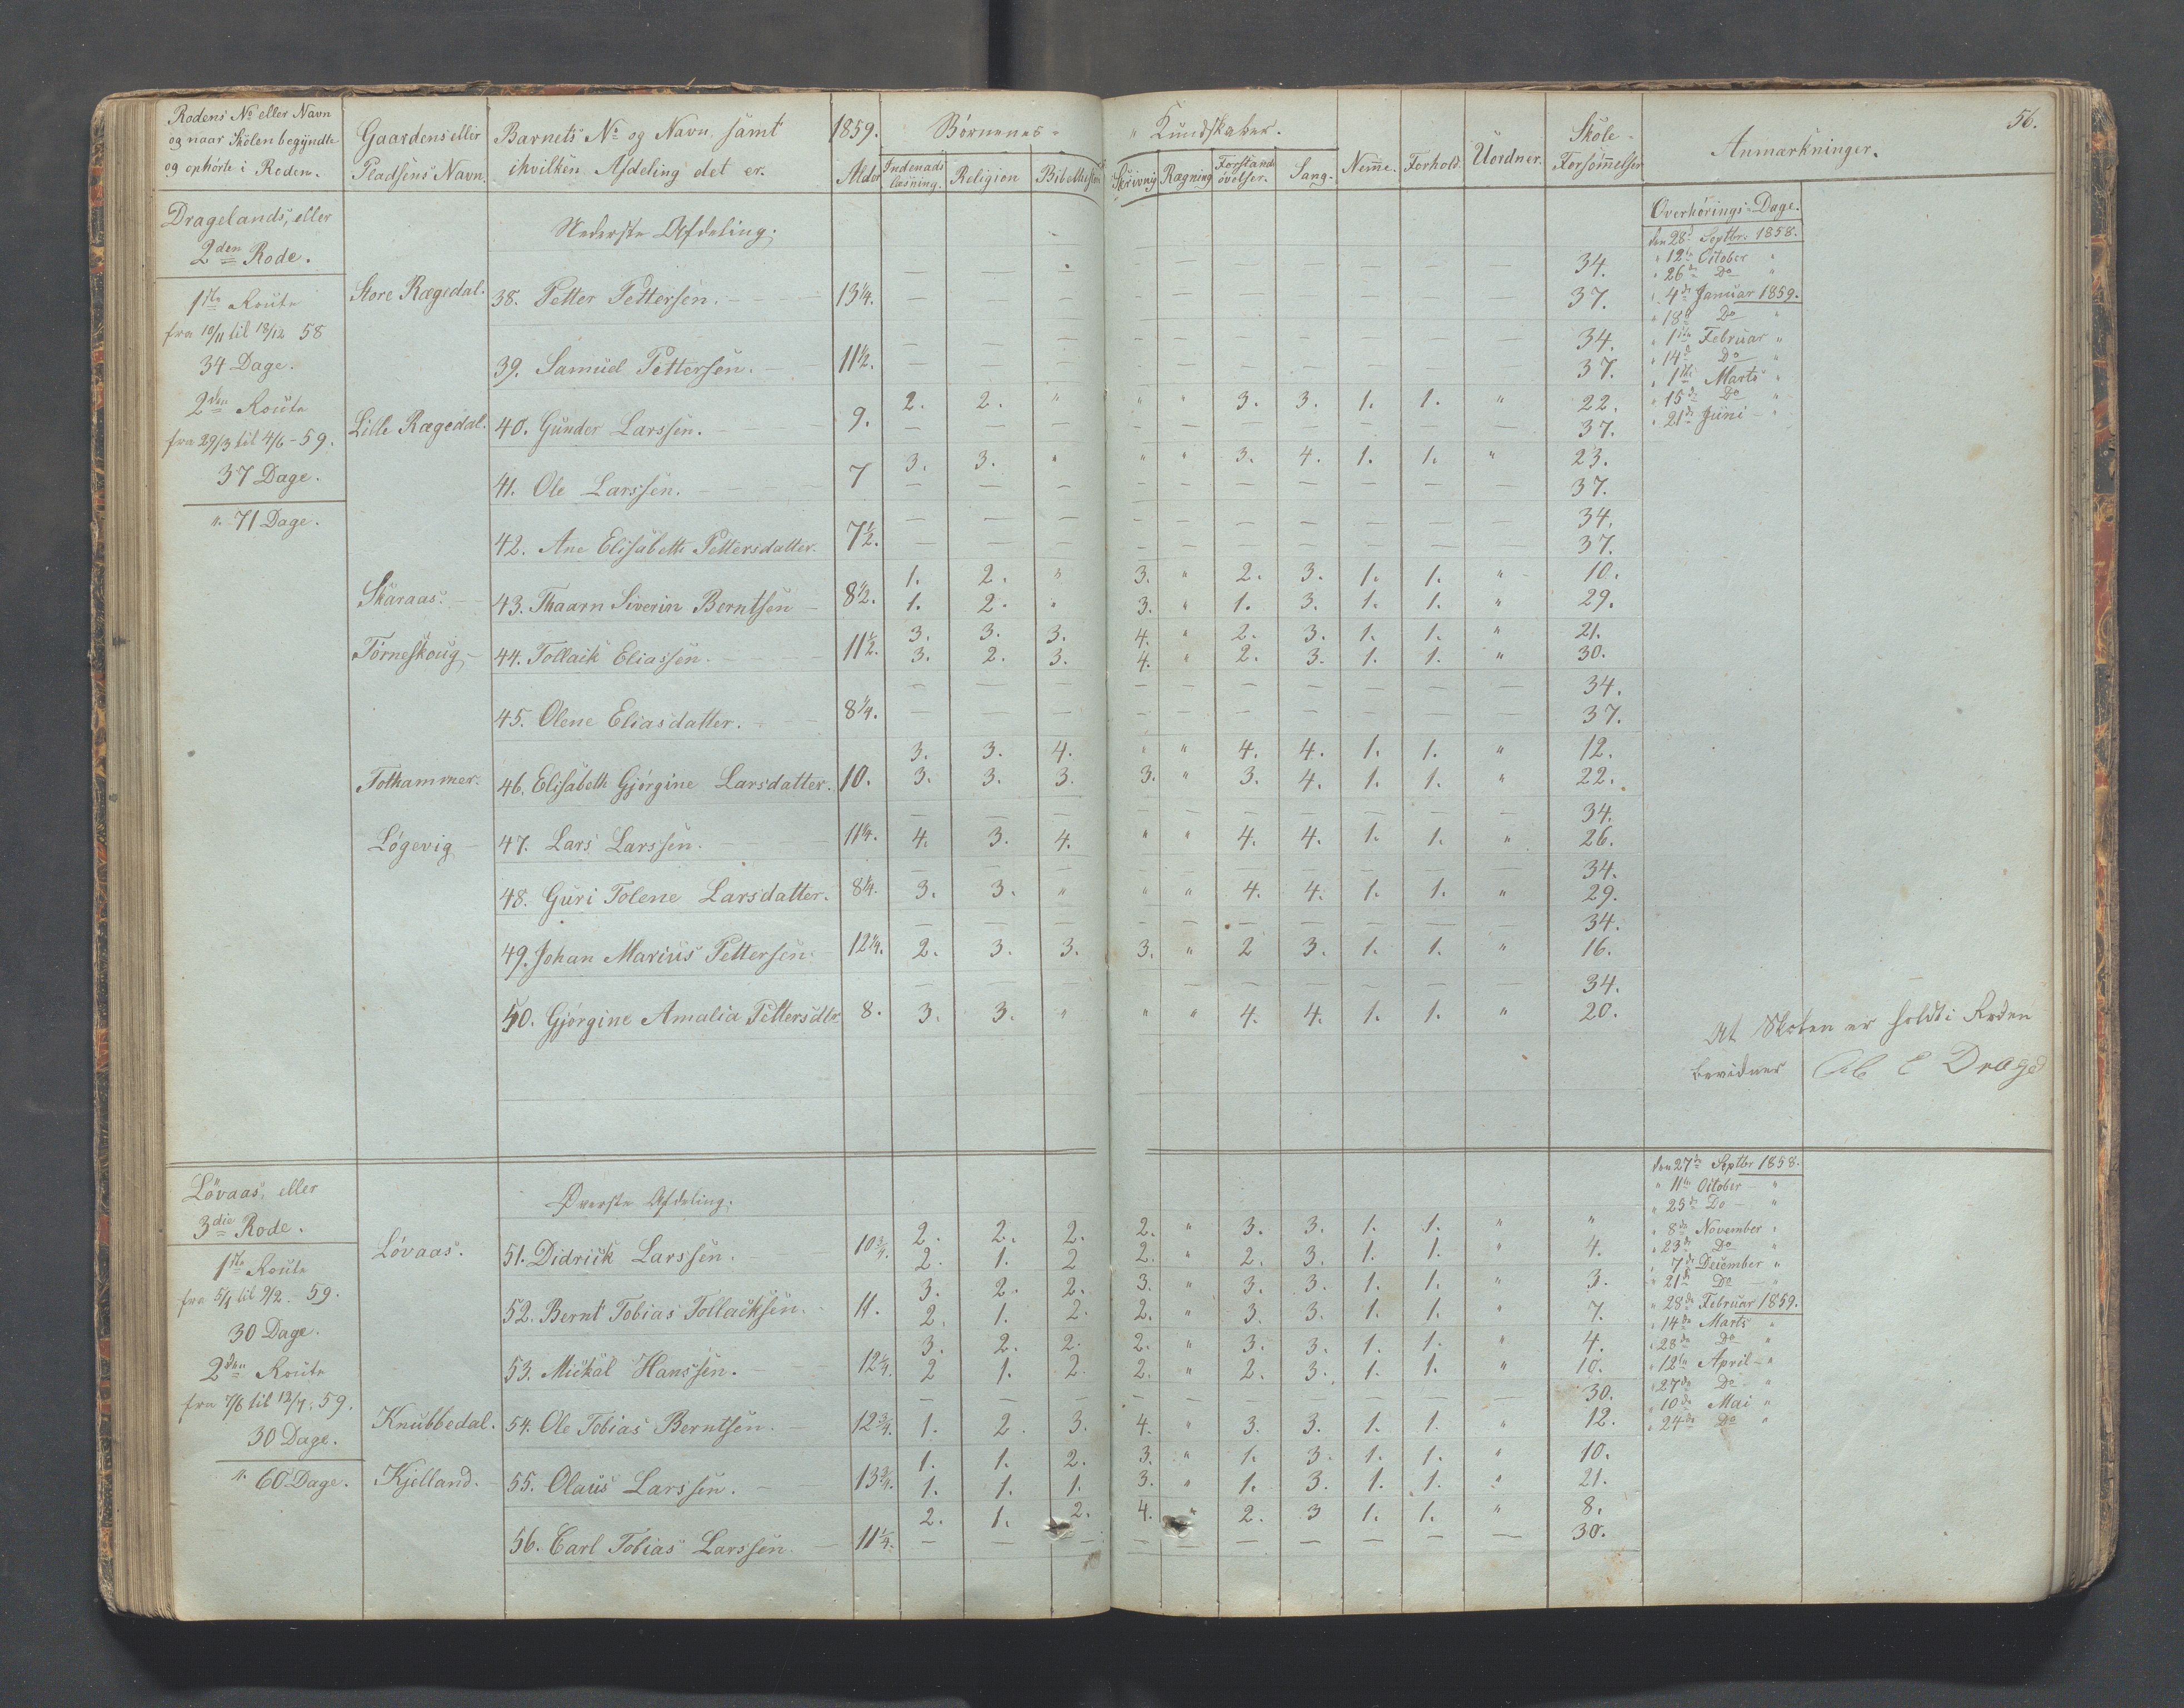 56.
Rodens No eller Navn og naar Skolen begyndte og ophørte i Roden. Gaardens eller Pladsens Navn. Barnets No og Navn samt ihvilken Afdeling det er. 1859. Alder Børnenes Kundskaber. Indenadslæsning. Religion Bibelhistori Skrivnig Rægning Forstandsøvelser. Sang. Nem̅e. Forhold. Uordner. Skole-Forsøm̅elser Anmærkninger.
Dragelands, eller
2den Rode.
Nederste Afdeling.
Overhørings-Dage.
den 28d Septbr. 1858.
" 12te October "
" 26de Do "
" 4de Januar 1859.
" 18d Do "
" 1ste Februar "
" 14d Do "
" 1ste Marts "
" 15de Do "
" 21de Juni "
1ste Route
fra 10/11 til 18/12 58
34 Dage.
2den Route
fra 29/3 til 4/6 - 59.
37 Dage.
". 71 Dage.
— — — — — — — — — — 34.
Store Rægedal. 38. Petter Pettersen. 13 1/4. — — — — — — — — — — 37.
— — — — — — — — — — 34.
39. Samuel Pettersen. 11 1/2. — — — — — — — — — — 37.
2. 2. " " " 3. 3. 1. 1. " 22.
Lille Rægedal. 40. Gunder Larssen. 9. — — — — — — — — — — 37.
3. 3. " " " 3. 4. 1. 1. " 23.
41. Ole Larssen. 7 — — — — — — — — — — 37.
— — — — — — — — — — 34.
42. Ane Elisabeth Pettersdatter. 7 1/2. — — — — — — — — — — 37.
1. 2. " 3. " 2. 3. 1. 1. " 10.
Skaraas. 43. Thaarn Siverin Berntsen 8 1/2. 1. 2. " 3. " 1. 3. 1. 1. " 29.
3. 3. 3. 4. " 2. 3. 1. 1. " 21.
Torneskoug 44. Tollaik Eliassen. 11 1/2. 3. 2. 3. 4. " 2. 3. 1. 1. " 30.
— — — — — — — — — — 34.
45. Olene Eliasdatter. 8 1/4. — — — — — — — — — — 37.
3. 3. 4. " " 4. 4. 1. 1. " 12.
Tolhammer. 46. Elisabeth Gjørgine Larsdatter. 10. 3. 3. 3. 3. " 3. 4. 1. 1. " 22.
— — — — — — — — — — 34.
Løgevig 47. Lars Larssen. 11 1/4. 4. 3. 4. " " 4. 4. 1. 1. " 26.
— — — — — — — — — — 34.
48. Guri Tolene Larsdatter. 8 1/4. 3. 3. " " " 4. 4. 1. 1. " 29.
— — — — — — — — — — 34.
49. Johan Marius Pettersen. 12 1/4. 2. 3. 3. 3. " 2 3. 1. 1. " 16.
— — — — — — — — — — 34.
50. Gjørgine Amalia Pettersdtr. 8. 3. 3. " " " 4. 4. 1. 1. " 20.
At Skolen er holdt i Roden
bevidner
Løvaas, eller
3die Rode.
Øverste Afdeling.
den 27de Septbr 1858.
" 11te October "
" 25de Do "
" 8de November "
" 23de Do "
" 7de December "
" 21de Do "
" 28de Februar 1859.
" 14de Marts "
" 28de Do "
" 12te April "
" 27de Do "
" 10de Mai "
" 24de Do "
1ste Route
fra 5/1 til 9/2. 59.
30 Dage.
2den Route
fra 7/6 til 12/7. 59.
30 Dage.
". 60 Dage.
2. 2. 2. 2. " 3. 3. 1. 1. " "
Løvaas. 51. Didrick Larssen. 10 3/4. 2. 1. 2 2. " 2. 3. 1. 1. " 4.
3. 2. 2. 3. " 3. 3. 1. 1. " 3.
52. Bernt Tobias Tollacksen. 11. 2. 1. 2. 2. " 3. 3. 1. 1. " 7.
3. 2. 2. 2. " 3. 3. 1. 1. " 4.
53. Mickal Hanssen. 12 1/4. 2 1. 2. 2. " 2. 3. 1. 1. " 10.
— — — — — — — — — — 30.
Knubbedal. 54. Ole Tobias Berntsen. 12 3/4. 1. 2. 3. 4. " 3. 3. 1. 1. " 12.
1. 1. 2. 3. " 1. 3. 1. 1. " 10.
Kjelland. 55. Olaus Larssen. 13 3/4. 1. 1. 1. 3. " 1. 3. 1. 1. " 21.
2. 1. 2. 4. " 2. 3 1. 1. " 8.
56. Carl Tobias Larssen. 11 1/4. — — — — — — — — — — 30.